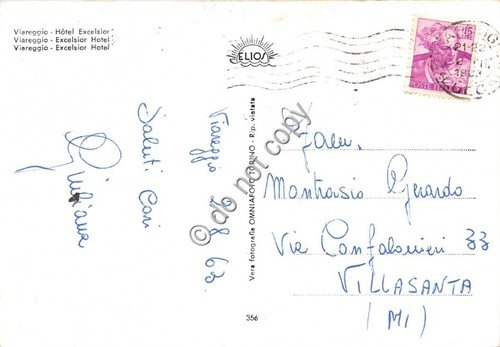 Viareggio - Hôtel Excelsior
Viareggio - Excelsior Hotel
Viareggio - Excelsior Hotel
ELIOS
L.15
POSTE ITALIANE
21-22
Viareggio 2/8 63.
Saluti Cari
Giuliana
Vera fotografia OMNIAFOTO TORINO - Rip. vietata
do not copy
356
Fam.
Montrasio Gerardo
Via Confalonieri 33
VILLASANTA
(MI)